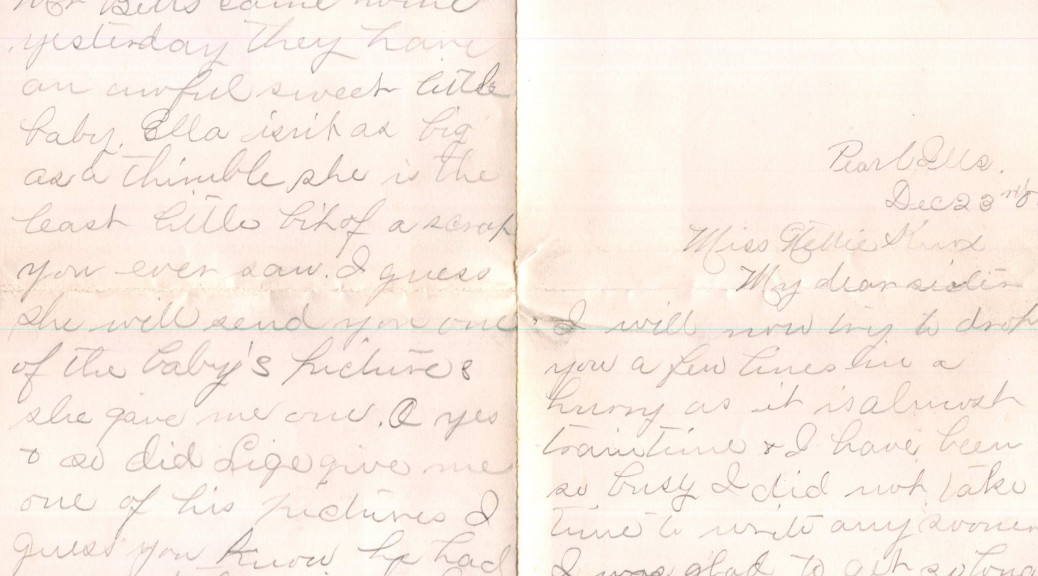 Mr Bells came home
yesterday they have
an awful sweet little
baby. Ella isn't as big
as a thimble she is the
least little bit of a scrap
you ever saw. I guess
she will send you one
of the baby's pictures
she gave me one. O yes
& so did Lige give me
one of his pictures I
guess you know he had
Pearl Ills.
Dec 23
Miss Nellie
My dear sister
I will now try to drop
you a few lines in a
hurry as it is almost
train time & I have been
so busy I did not take
time to write any sooner
I was glad to get so long